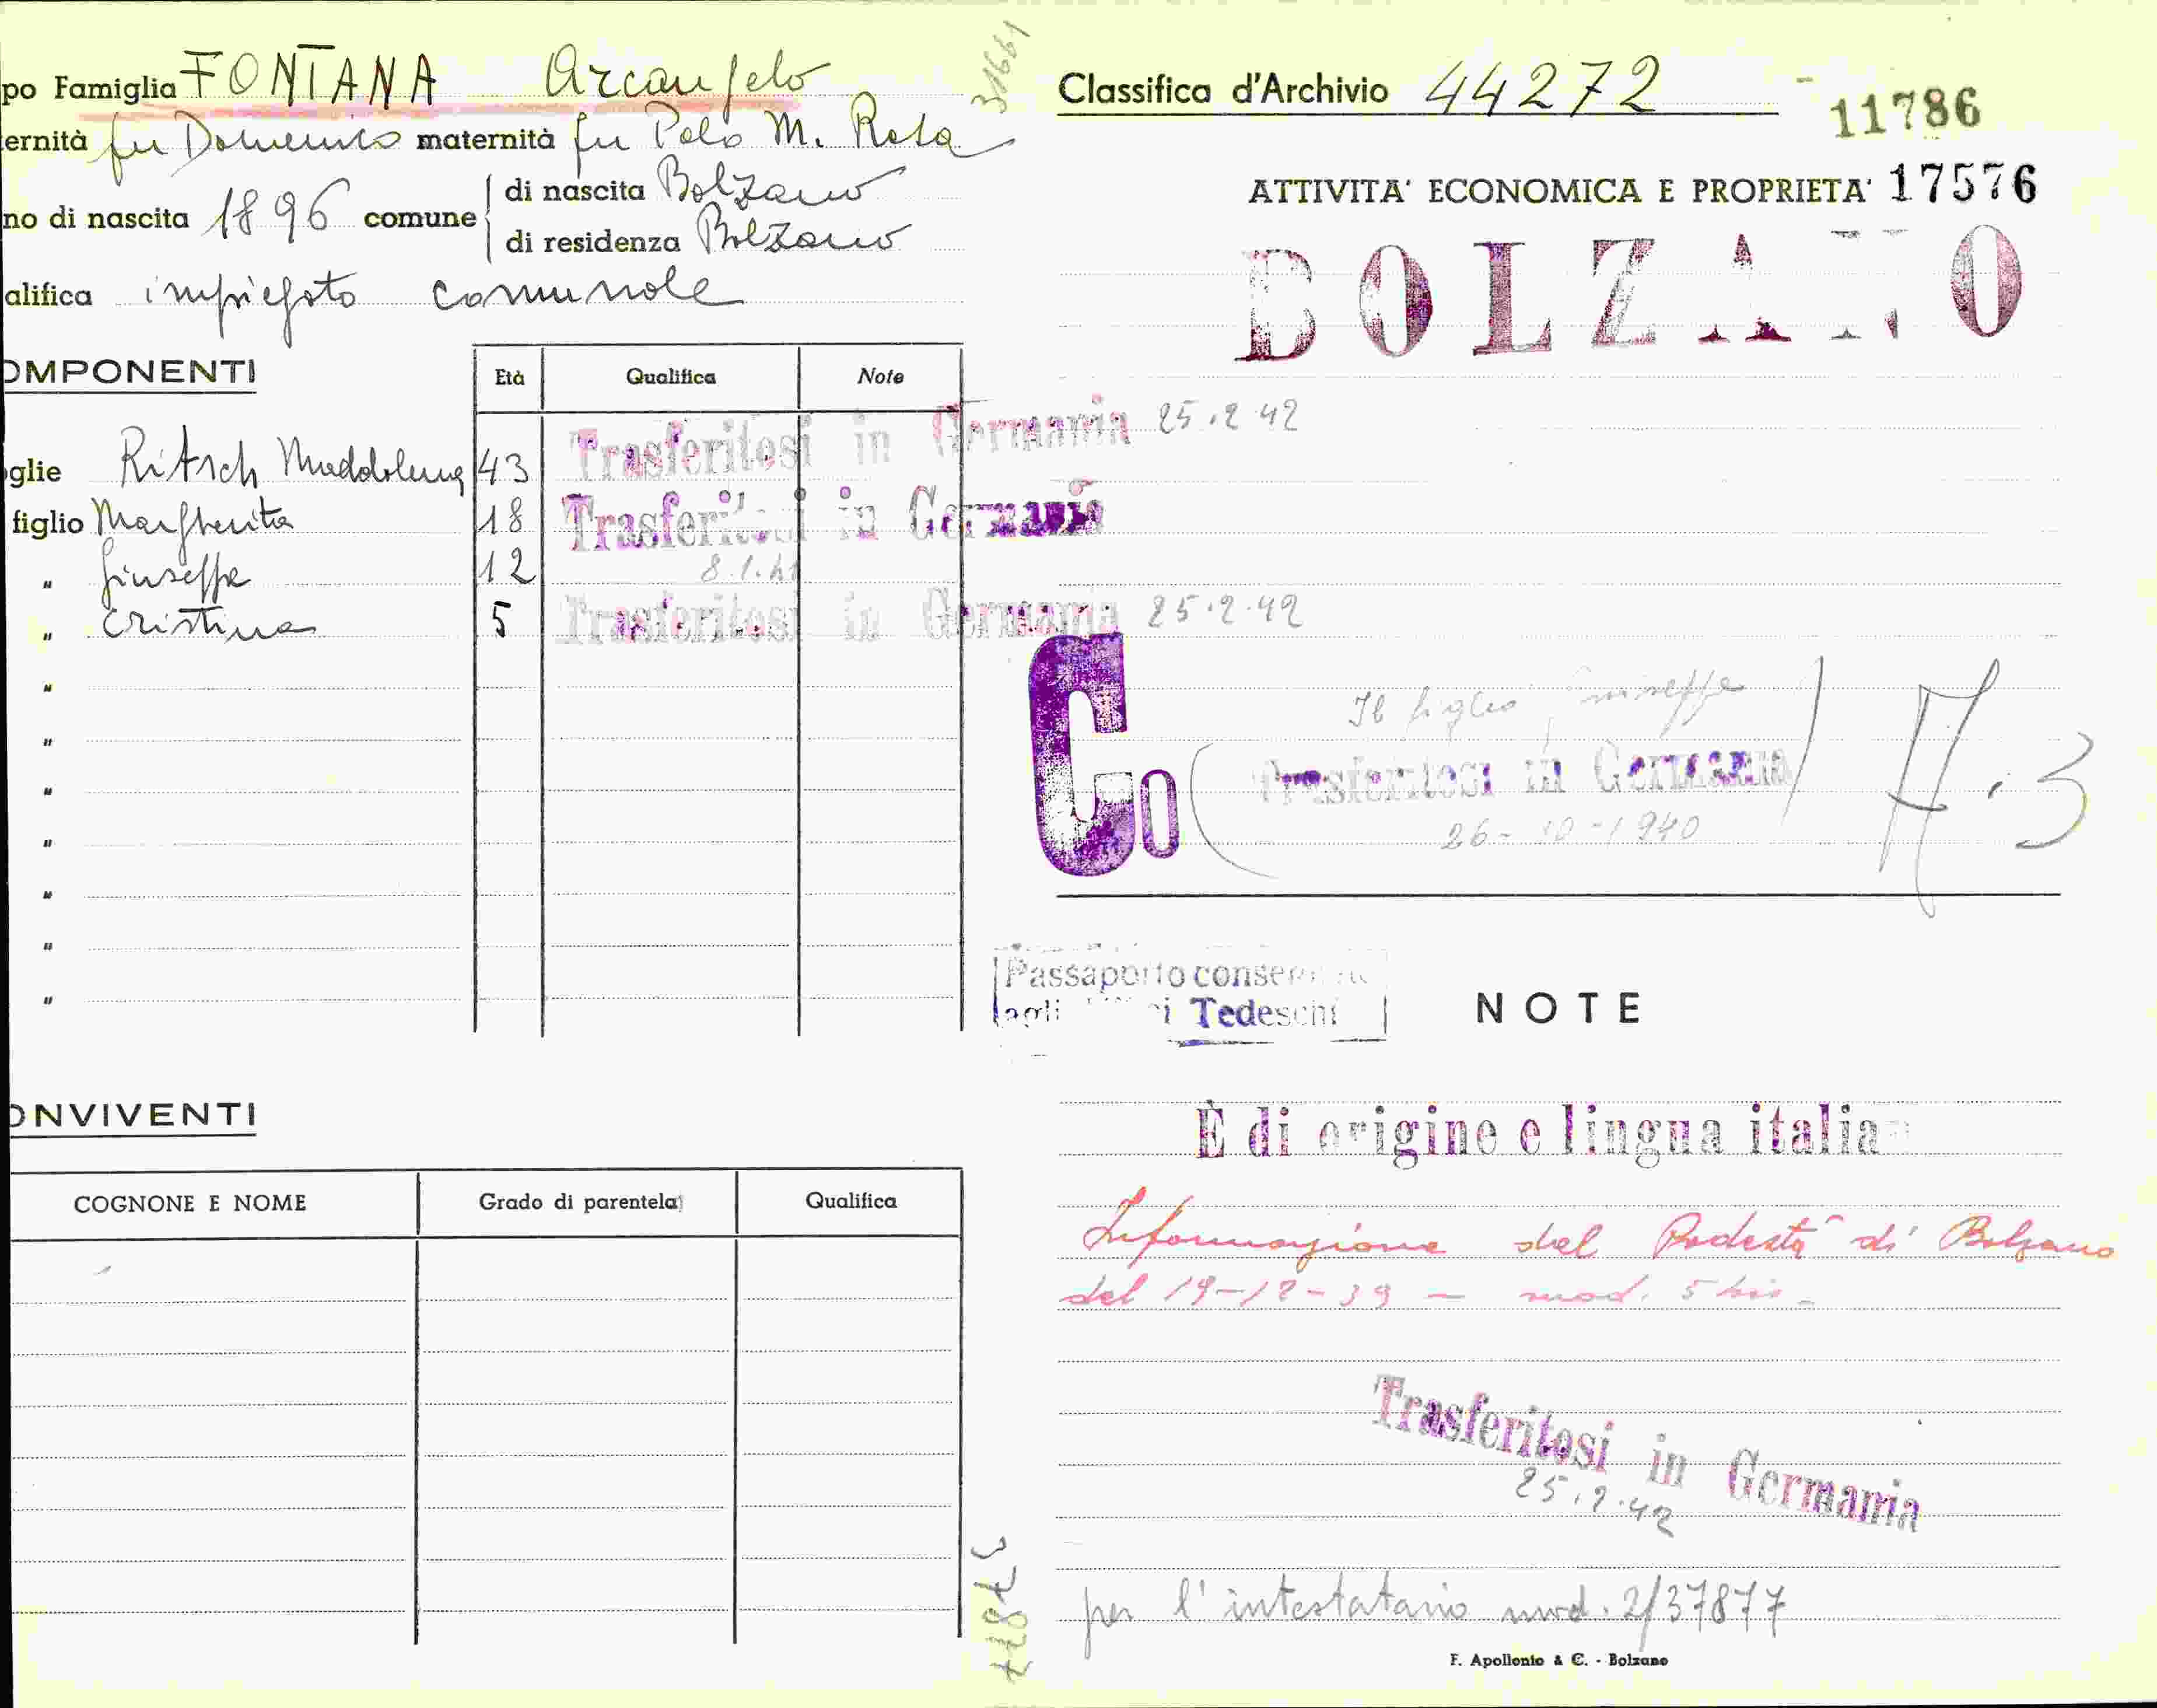 po Famiglia FONTANA Arcangelo
ernità fu Domenico maternità fu Polo M. Rosa
no di nascita 1896 comune di nascita Bolzano
di residenza Bolzano
alifica impiegato comunale
OMPONENTI
Età Qualifica Note
glie Ritsch Maddalena 43 Trasferitosi in Germania 25.2.42
figlio Margherita 18 Trasferitosi in Germania
" Giuseppe 12 8.1.41
" Cristina 5 Trasferitosi in Germania 25.2.42
"
"
"
"
"
"
"
ONVIVENTI
COGNONE E NOME Grado di parentela Qualifica
31661
Classifica d'Archivio 44272 - 11786
ATTIVITA' ECONOMICA E PROPRIETA' 17576
BOLZANO
Co
Il figlio Giuseppe
Trasferitosi in Germania
26-10-1940
A.3
Passaporto conservato
agli Tedeschi
NOTE
È di origine e lingua italia
Informazione del Podestà di Bolzano
del 19-12-39 - mod. 5 bis -
Trasferitosi in Germania
25.2.42
per l'intestatario mod. 2/37877
F. Apollonio & C. - Bolzano